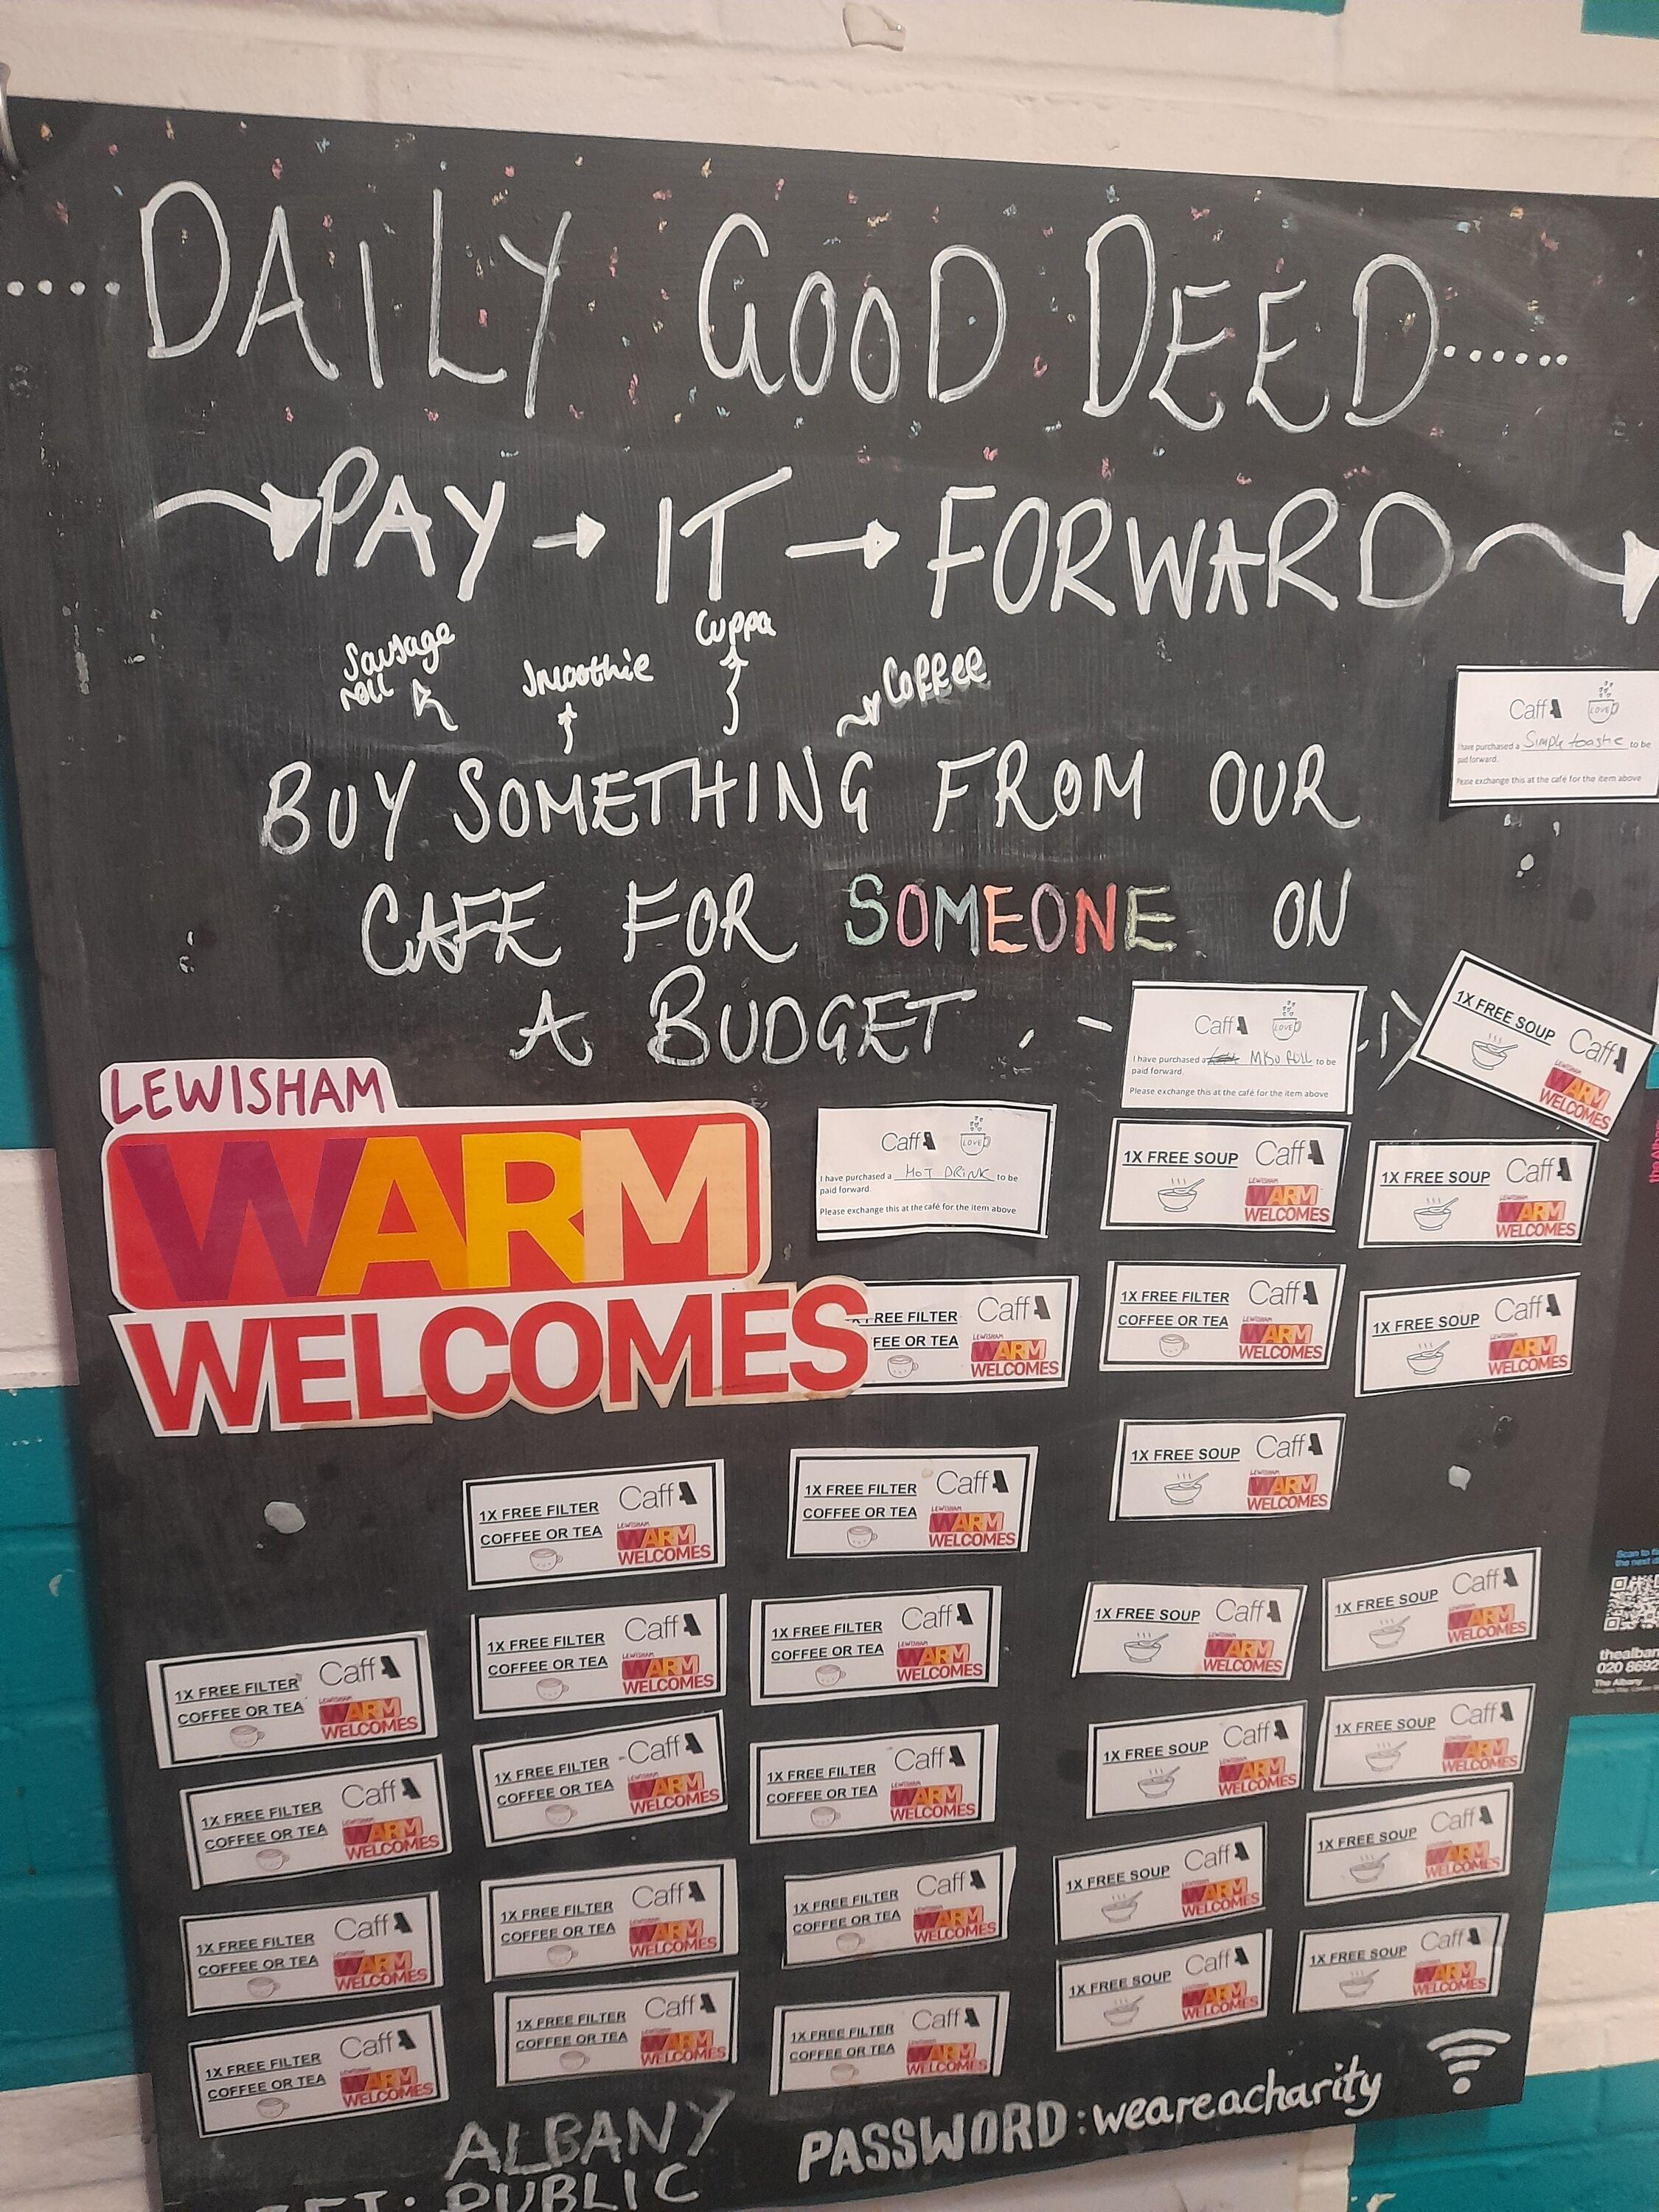 DAILY GOOD DEED
PAY IT FORWARD
Sausage
roll
Smoothie
Cuppa
Coffee
BUY SOMETHING FROM OUR
CAFE FOR SOMEONE ON
A BUDGET
CaffA
LOVE
I have purchased a Simple toastie to be
paid forward.
Please exchange this at the café for the item above
CaffA
LOVE
I have purchased a MISO ROLL to be
paid forward.
Please exchange this at the café for the item above
1X FREE SOUP CaffA
WARM
WELCOMES
LEWISHAM
WARM
WELCOMES
CaffA
LOVE
I have purchased a HOT DRINK to be
paid forward.
Please exchange this at the café for the item above
1X FREE SOUP CaffA
LEWISHAM
WARM
WELCOMES
1X FREE SOUP CaffA
LEWISHAM
WARM
WELCOMES
FREE FILTER CaffA
FEE OR TEA
LEWISHAM
WARM
WELCOMES
1X FREE FILTER CaffA
COFFEE OR TEA
LEWISHAM
WARM
WELCOMES
1X FREE SOUP CaffA
LEWISHAM
WARM
WELCOMES
1X FREE FILTER CaffA
COFFEE OR TEA
LEWISHAM
WARM
WELCOMES
1X FREE FILTER CaffA
COFFEE OR TEA
LEWISHAM
WARM
WELCOMES
1X FREE SOUP CaffA
LEWISHAM
WARM
WELCOMES
1X FREE FILTER CaffA
COFFEE OR TEA
LEWISHAM
WARM
WELCOMES
1X FREE FILTER CaffA
COFFEE OR TEA
LEWISHAM
WARM
WELCOMES
1X FREE FILTER CaffA
COFFEE OR TEA
LEWISHAM
WARM
WELCOMES
1X FREE SOUP CaffA
LEWISHAM
WARM
WELCOMES
1X FREE SOUP CaffA
LEWISHAM
WARM
WELCOMES
1X FREE FILTER CaffA
COFFEE OR TEA
LEWISHAM
WARM
WELCOMES
1X FREE FILTER CaffA
COFFEE OR TEA
LEWISHAM
WARM
WELCOMES
1X FREE FILTER CaffA
COFFEE OR TEA
LEWISHAM
WARM
WELCOMES
1X FREE SOUP CaffA
LEWISHAM
WARM
WELCOMES
1X FREE SOUP CaffA
LEWISHAM
WARM
WELCOMES
1X FREE FILTER CaffA
COFFEE OR TEA
LEWISHAM
WARM
WELCOMES
1X FREE FILTER CaffA
COFFEE OR TEA
LEWISHAM
WARM
WELCOMES
1X FREE FILTER CaffA
COFFEE OR TEA
LEWISHAM
WARM
WELCOMES
1X FREE SOUP CaffA
LEWISHAM
WARM
WELCOMES
1X FREE SOUP CaffA
LEWISHAM
WARM
WELCOMES
1X FREE FILTER CaffA
COFFEE OR TEA
LEWISHAM
WARM
WELCOMES
1X FREE FILTER CaffA
COFFEE OR TEA
LEWISHAM
WARM
WELCOMES
1X FREE FILTER CaffA
COFFEE OR TEA
LEWISHAM
WARM
WELCOMES
1X FREE SOUP CaffA
LEWISHAM
WARM
WELCOMES
1X FREE SOUP CaffA
LEWISHAM
WARM
WELCOMES
ALBANY
PUBLIC
PASSWORD: weareacharity
Scan to
the next
thealban
020 8692
The Albany